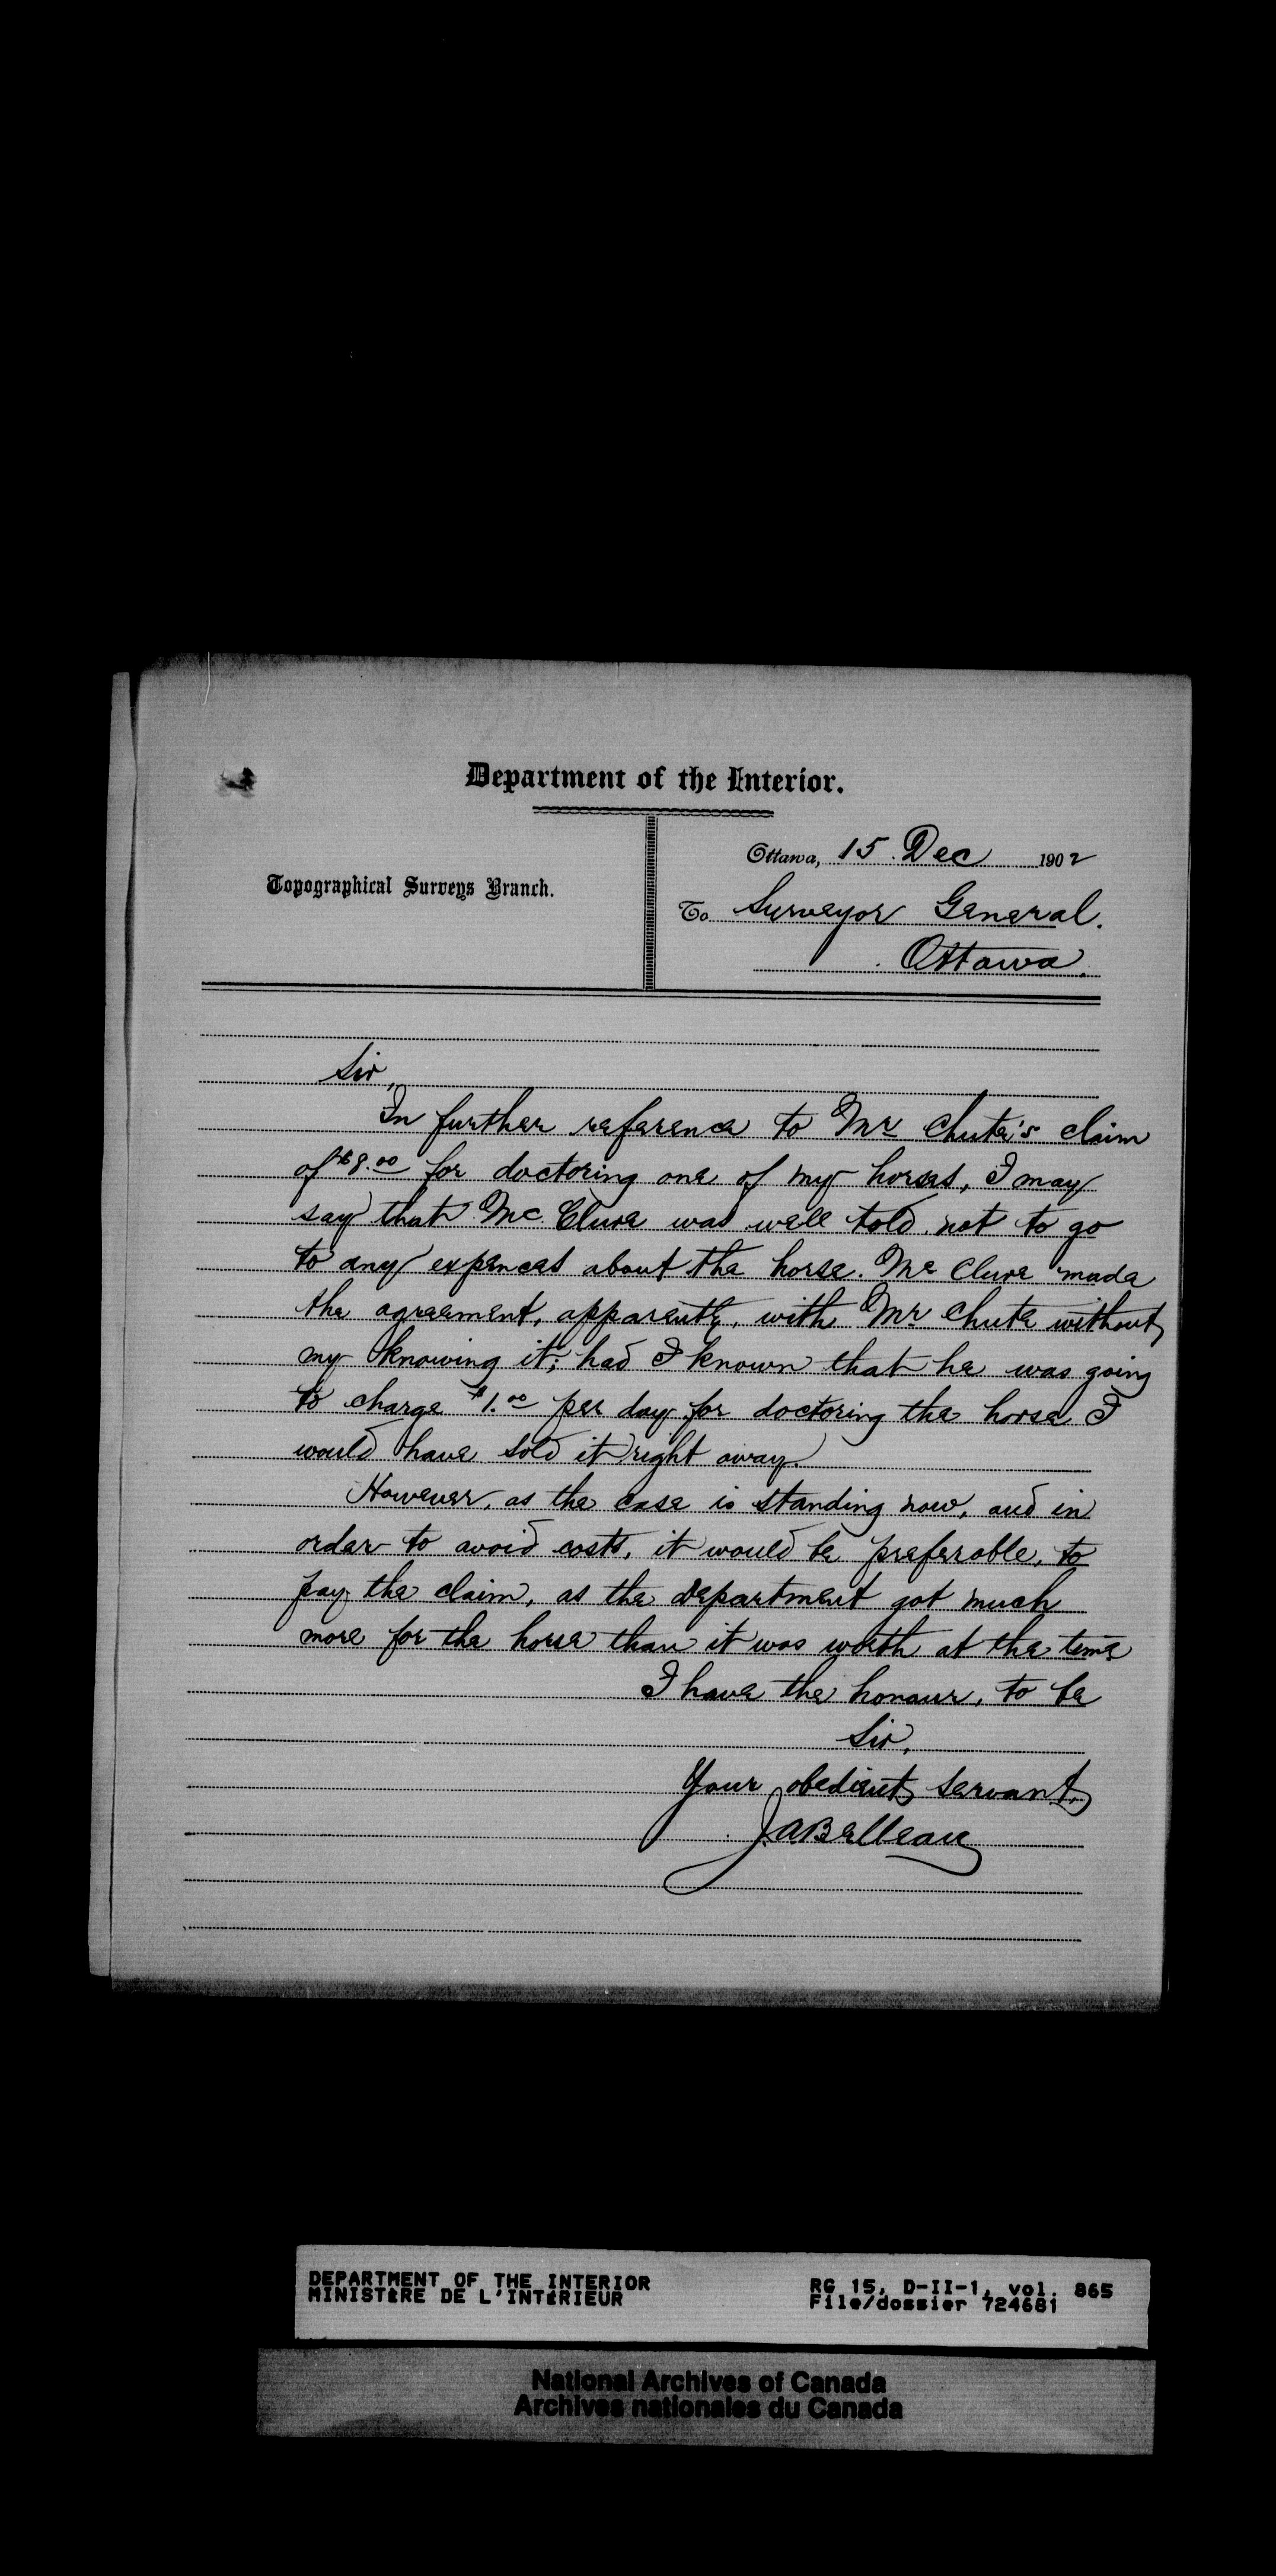 Department of the Interior.
Topographical Surveys Branch.
Ottawa, 15. Dec 1902
To Surveyor General.
Ottawa.
Sir,
In further reference to Mr Chute's claim
of $8.00 for doctoring one of my horses, I may
say that Mc Clure was well told not to go
to any expences about the horse. Mc Clure made
the agreement, apparently, with Mr Chute without
my knowing it; had I known that he was going
to charge $1.00 per day for doctoring the horse I
would have sold it right away.
However, as the case is standing now, and in
order to avoid costs, it would be preferrable, to
pay the claim, as the department got much
more for the horse than it was worth at the time
I have the honour, to be
Sir,
Your obedient servant,
J.A Belleau
DEPARTMENT OF THE INTERIOR
MINISTÈRE DE L'INTÉRIEUR
RG 15, D-II-1, vol. 865
File/dossier 724681
National Archives of Canada
Archives nationales du Canada